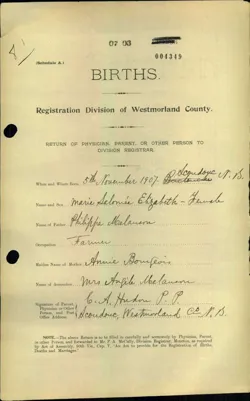 07 03
004348
(Schedule A.)
BIRTHS.
Registration Division of Westmorland County.
RETURN OF PHYSICIAN, PARENT, OR OTHER PERSON TO
DIVISION REGISTRAR.
Scoudouc
When and Where Born, 5th November 1907. N. B.
Name and Sex, Marie Salomée Elizabeth - Female
Name of Father, Philippe Melanson
Occupation, Farmer
Maiden Name of Mother, Annie Bourgeois
Name of Accoucheur, Mrs Angèle Melanson
Signature of Parent,
Physician or other
Person, and Post
Office Address,
C. A. Hudon P. P.
Scoudouc, Westmorland Co. N. B.
NOTE.—The above Return is to be filled in carefully and accurately by Physician, Parent,
or other Person, and forwarded to Division Registrar, Moncton, as required
by Act of Assembly, "An Act to provide for the Registration of Births,
Deaths and Marriages."